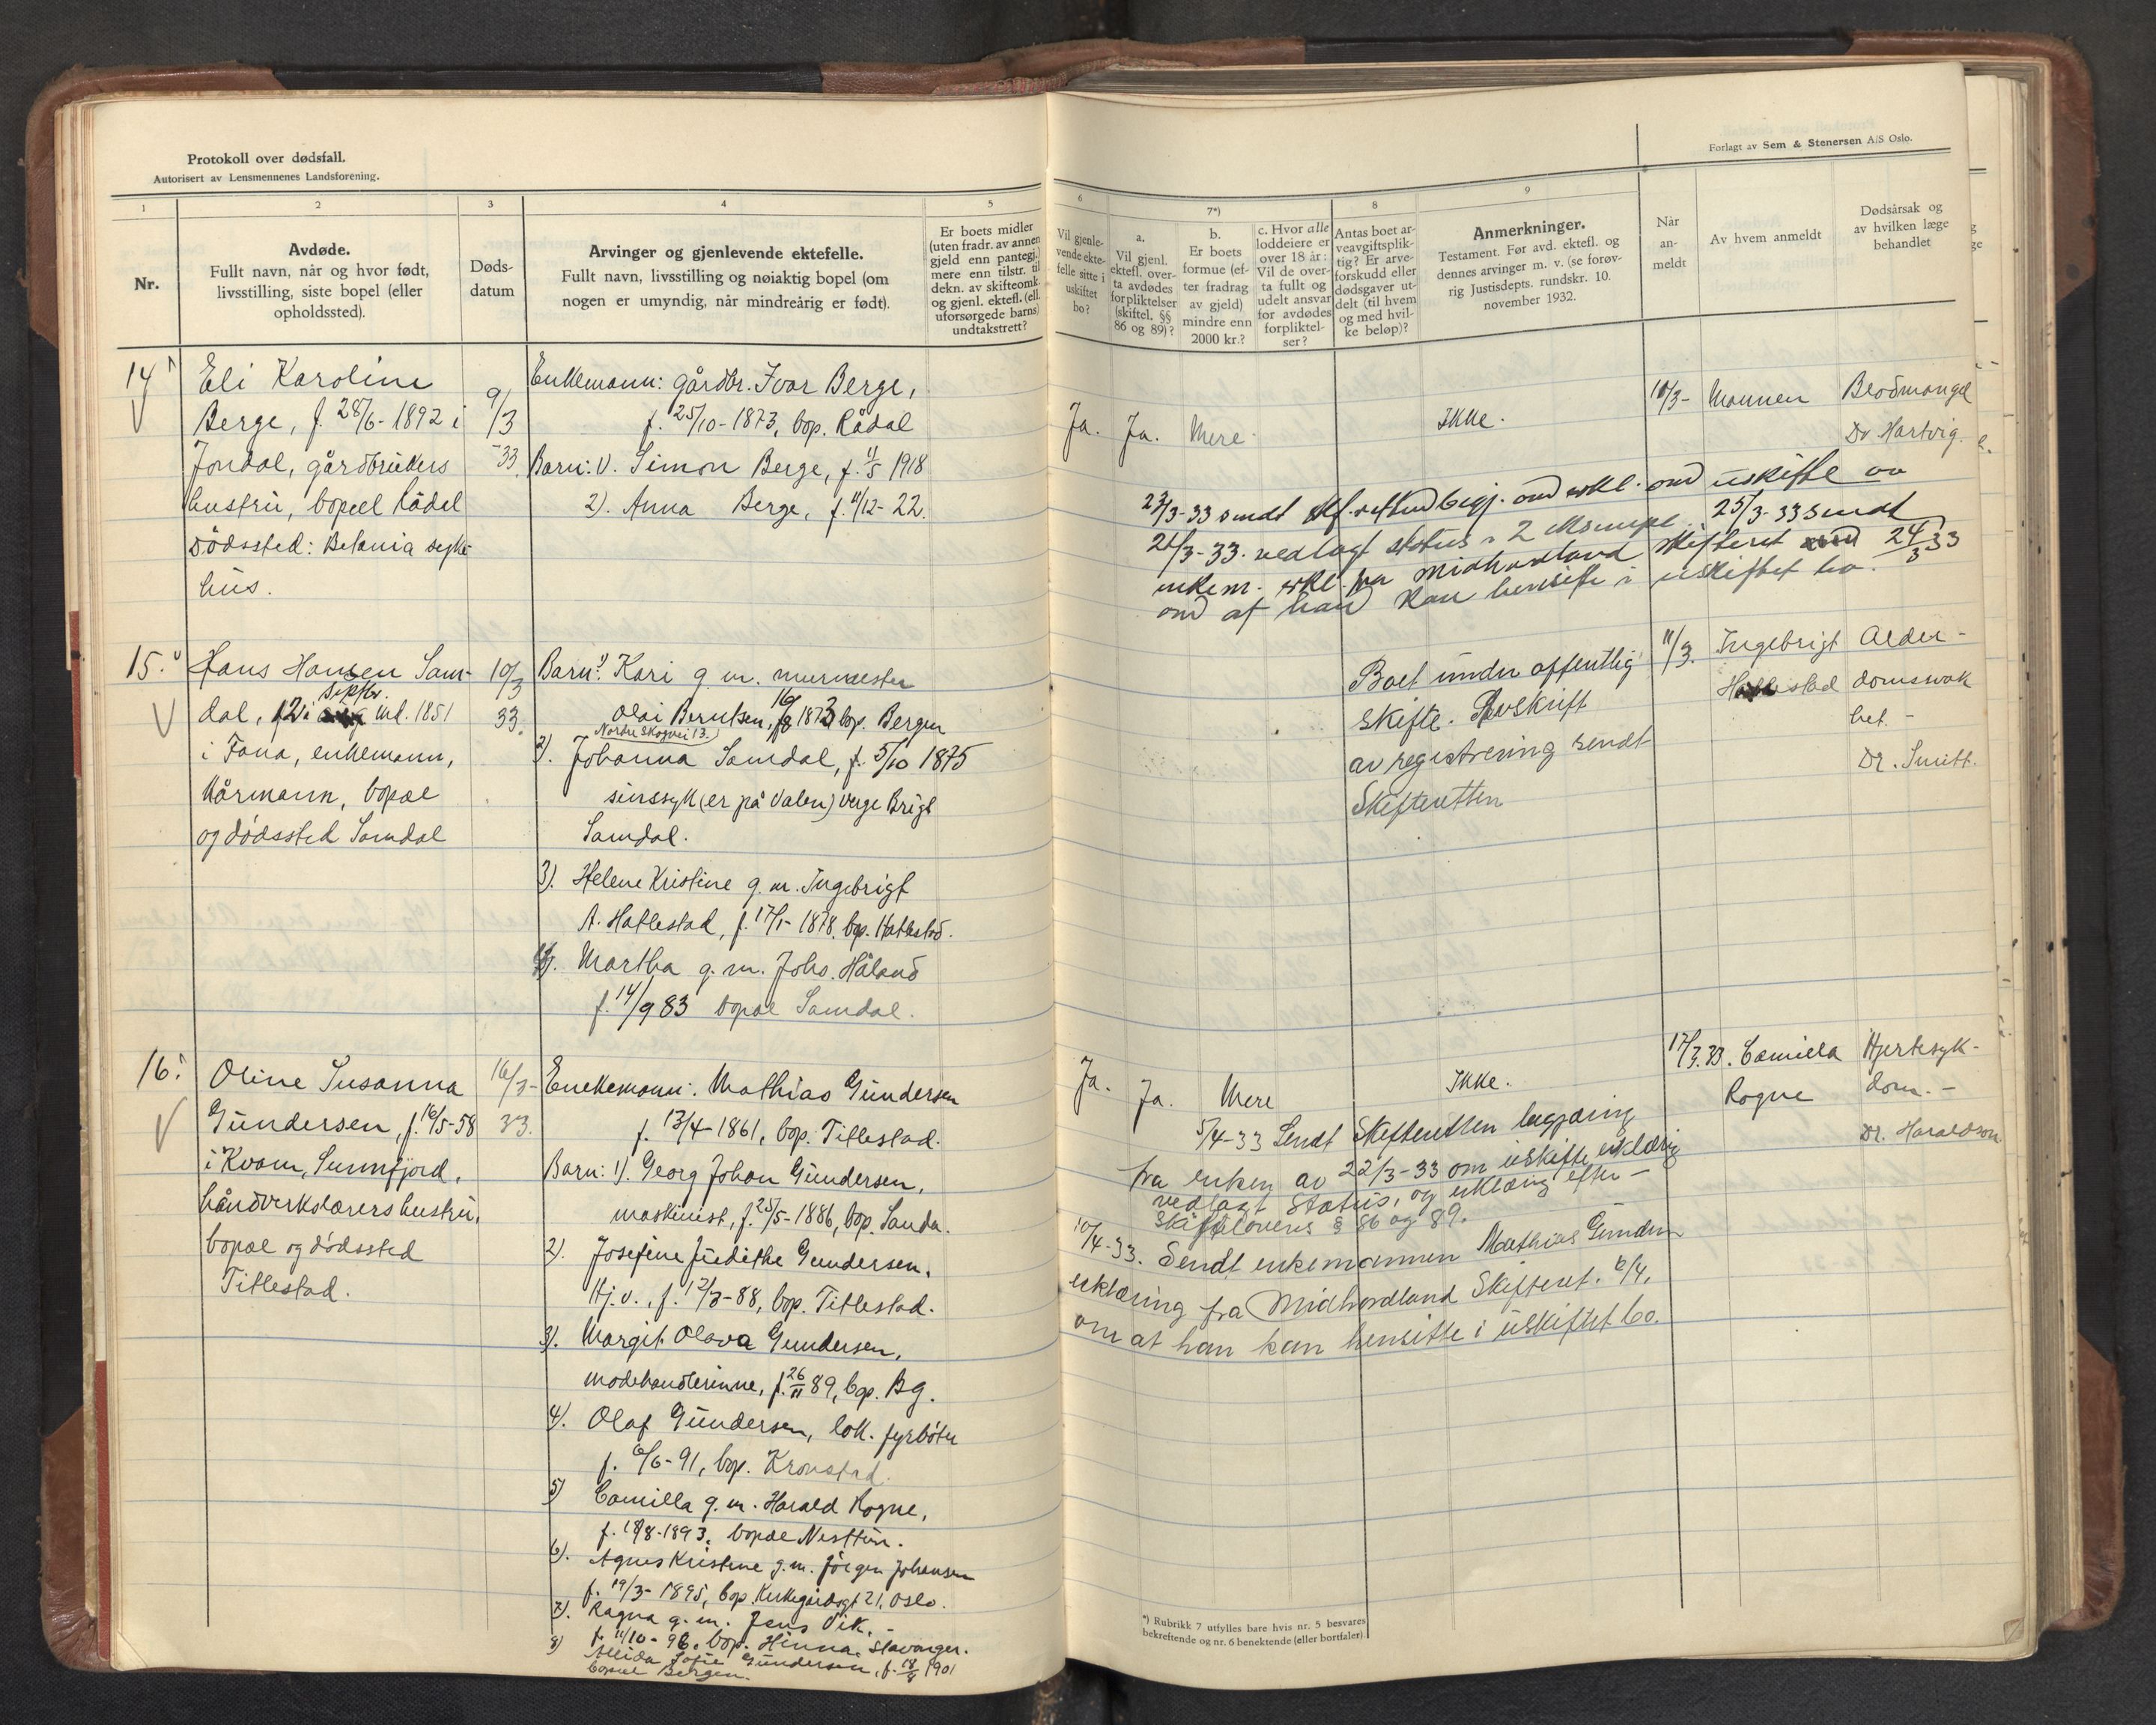 Protokoll over dødsfall.
Autorisert av Lensmennenes Landsforening.
1
2
3
4
5
Nr.
Avdøde.
Fullt navn, når og hvor født,
livsstilling, siste bopel (eller
opholdssted).
Døds-
datum
Arvinger og gjenlevende ektefelle.
Fullt navn, livsstilling og nøiaktig bopel (om
nogen er umyndig, når mindreårig er født).
Er boets midler
(uten fradr. av annen
gjeld enn pantegj.)
mere enn tilstr. til
dekn. av skifteomk.
og gjenl. ektef. (ell.
uforsørgede barns)
undtakstrett?
14
Eli Karoline
Berge, f. 28/6-1892 i
Jondal, gårdbrukers
hustru, bopel Rådal
Dödssted: Betania syke-
hus.
9/3
-33
Enkemann: gårdbr. Ivar Berge,
f. 25/10-1873, bop. Rådal
Barn: 1). Simon Berge, f. 11/5 1918
2). Anna Berge, f. 11/12-22.
15.
Hans Hansen Sam-
dal, f. 2 i septbr. md. 1851
i Fana, enkemann,
kårmann, bopæl
og dödssted Samdal
10/3
33.
Barn: 1) Kari g. m. murmester
Olai Berntsen, f. 16/8 1873 bop. Bergen
Nordre Skogvei 13.
2). Johanna Samdal, f. 5/10 1875
sinssyk (er på Valen) verge Brigt
Samdal.
3). Helene Kristine g. m. Ingebrigt
A. Hatlestad, f. 17/1-1878, bop. Hatlestad.
4). Martha g. m. Johs. Håland
f. 14/9 83 bopæl Samdal.
16.
Oline Susanna
Gundersen, f. 16/5-58
i Kvam, Sunnfjord,
håndverkslærers hustru,
bopæl og dödssted
Titlestad.
16/3-
33.
Enkemann: Mathias Gundersen
f. 13/4-1861, bop. Titlestad.
Barn: 1). Georg Johan Gundersen,
maskinist, f. 25/5-1886, bop. Sauda.
2). Josefine Judithe Gundersen,
Hj.v., f. 12/3-88, bop. Titlestad.
3). Margit Olava Gundersen,
modehandlerinne, f. 26/11 89, bop. Bg.
4). Olaf Gundersen, lok. fyrböter
f. 6/6-91, bop. Kronstad.
5) Camilla g. m. Harald Rogne,
f. 18/8-1893, bopæl Nesttun.
6). Agnes Kristine g. m. Jörgen Johansen
f. 19/3-1895, bop. Kirkegårdsgt 21, Oslo.
7). Ragna g. m. Jens Vik,
f. 11/10-96, bop. Hinna, Stavanger.
8) Alida Sofie Gundersen, f. 18/8 1901
bopæl Bergen.
Forlagt av Sem & Stenersen A/S Oslo.
6
7*)
8
9
Vil gjenle-
vende ekte-
felle sitte i
uskiftet
bo?
a.
Vil gjenl.
ektefl. over-
ta avdødes
forpliktelser
(skiftel. §§
86 og 89)?
b.
Er boets
formue (ef-
ter fradrag
av gjeld)
mindre enn
2000 kr.?
c. Hvor alle
loddeiere er
over 18 år:
Vil de over-
ta fullt og
udelt ansvar
for avdødes
forpliktel-
ser?
Antas boet ar-
veavgiftsplik-
tig? Er arve-
forskudd eller
dødsgaver ut-
delt (til hvem
og med hvil-
ke beløp)?
Anmerkninger.
Testament. Før avd. ektefl. og
dennes arvinger m. v. (se forøv-
rig Justisdepts. rundskr. 10.
november 1932.
Når
an-
meldt
Av hvem anmeldt
Dødsårsak og
av hvilken læge
behandlet
Ja.
Ja.
Mere.
Ikke.
10/3-
Mannen
Blodmangel
Dr Hartvig.
23/3-33 sendt begj. om erkl. om uskifte av
21/3-33. vedlagt status i 2 eksempl. 25/3-33 sendt
enkem. erkl. fra Midhordland skifteret 24/3 33
om at han kan hensitte i uskiftet bo.
Boet under offentlig
skifte. Avskrift
av registrering sendt
Skifteretten
11/3.
Ingebrigt
Hatlestad
Alder-
domssvak
het.-
Dr. Smitt.
Ja.
Ja.
Mere
Ikke.
17/3.33.
Camilla
Rogne
Hjertesyk-
dom.-
Dr. Haraldson
5/4-33 Sendt Skifteretten begjæring
fra enken av 22/3-33 om uskifte erklæring
vedlagt Status, og erklæring efter
skiftelovens § 86 og 89.
10/4-33. Sendt enkemannen Mathias Gundersen
erklæring fra Midhordland Skifteret. 6/4,
om at han kan hensitte i uskiftet bo.
*) Rubrikk 7 utfylles bare hvis nr. 5 besvares
bekreftende og nr. 6 benektende (eller bortfaller).